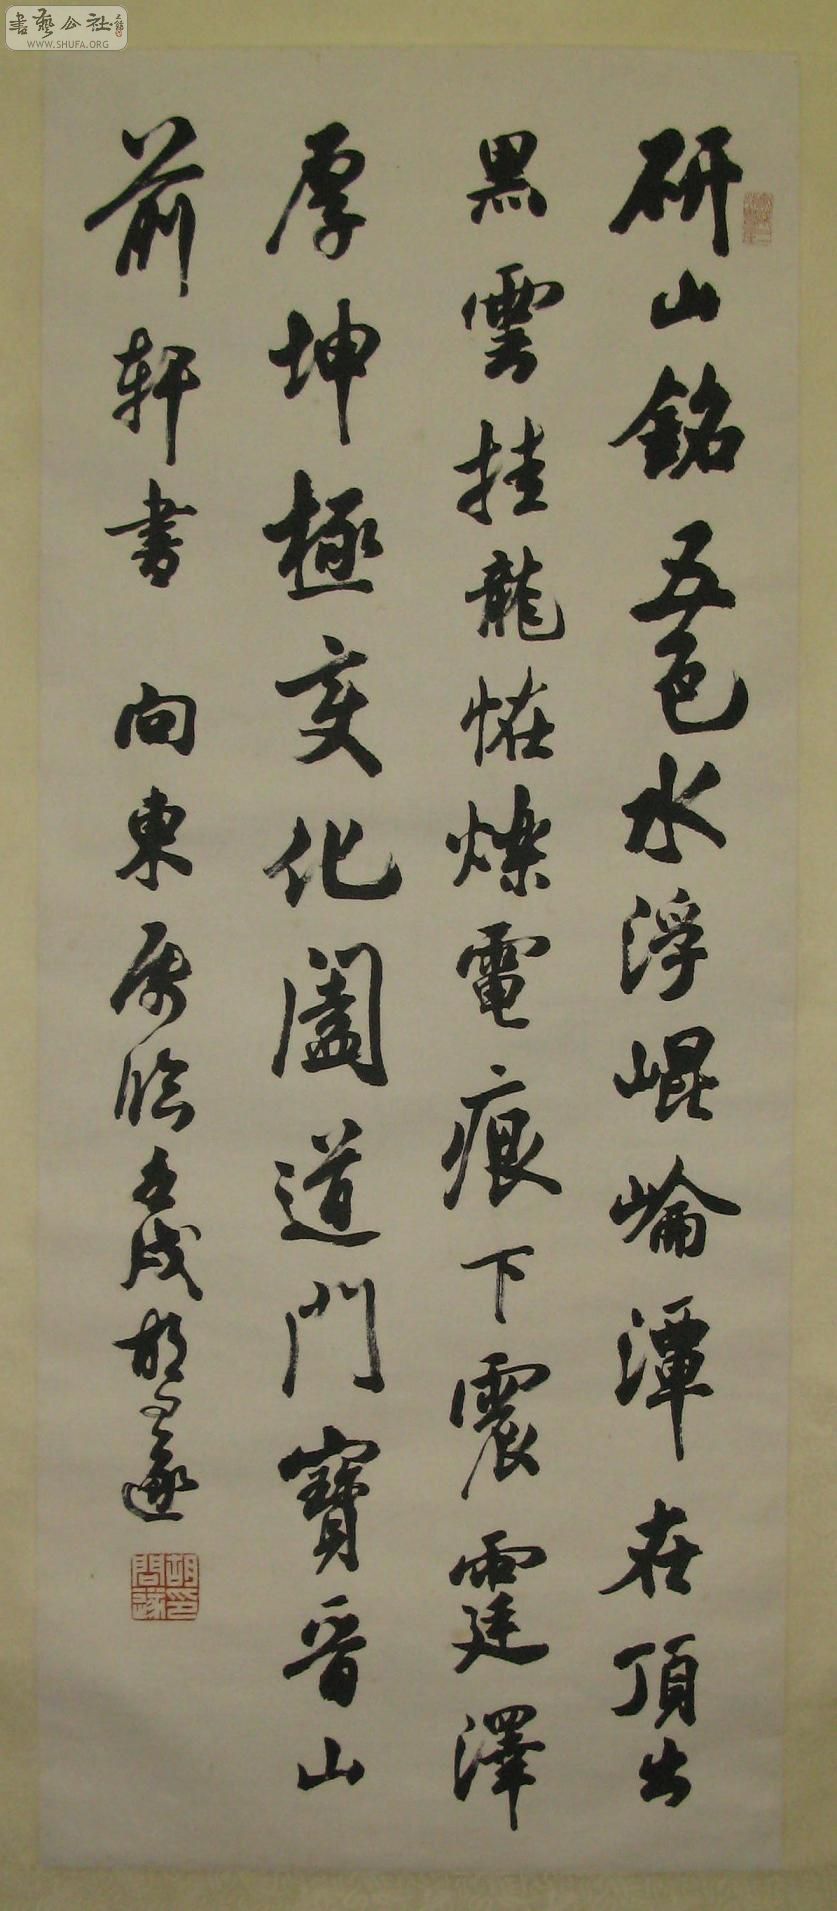 書藝公社
WWW.SHUFA.ORG
研山銘五色水浮崐崘潭在頂出
黑雲挂龍恠爍電痕下震霆澤
厚坤極变化闔道門寶晉山
前軒書 向東属臨壬戌胡问遂
胡印問遂